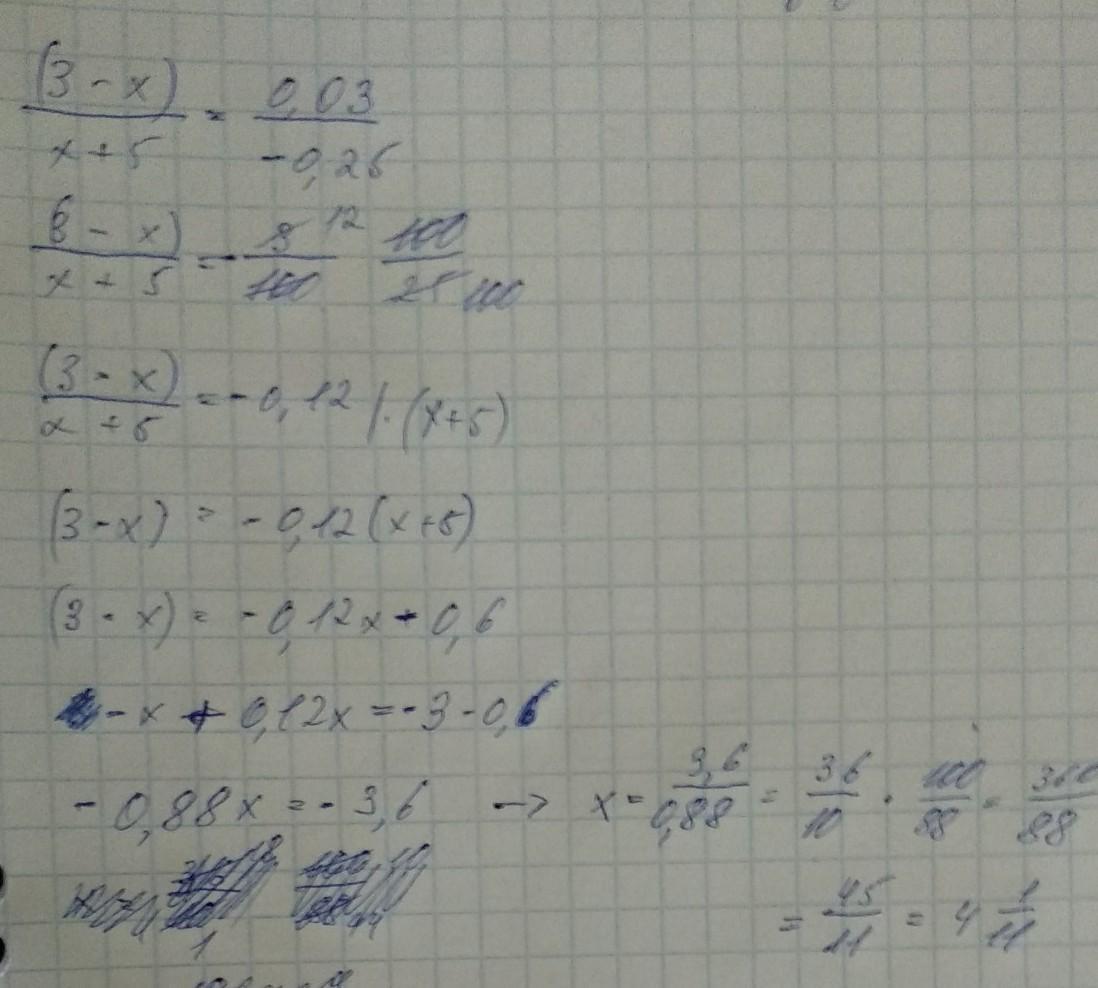 (3 - x) / x + 5 = 0,03 / -0,25
(3 - x) / x + 5 = - 3 12 / 100 100 / 25 100
(3 - x) / x + 5 = - 0,12 | · (x+5)
(3 - x) = - 0,12 (x+5)
(3 - x) = - 0,12x - 0,6
- x + 0,12x = - 3 - 0,6
- 0,88x = - 3,6 → x = 3,6 / 0,88 = 36 / 10 · 100 / 88 = 360 / 88
= 45 / 11 = 4 1/11